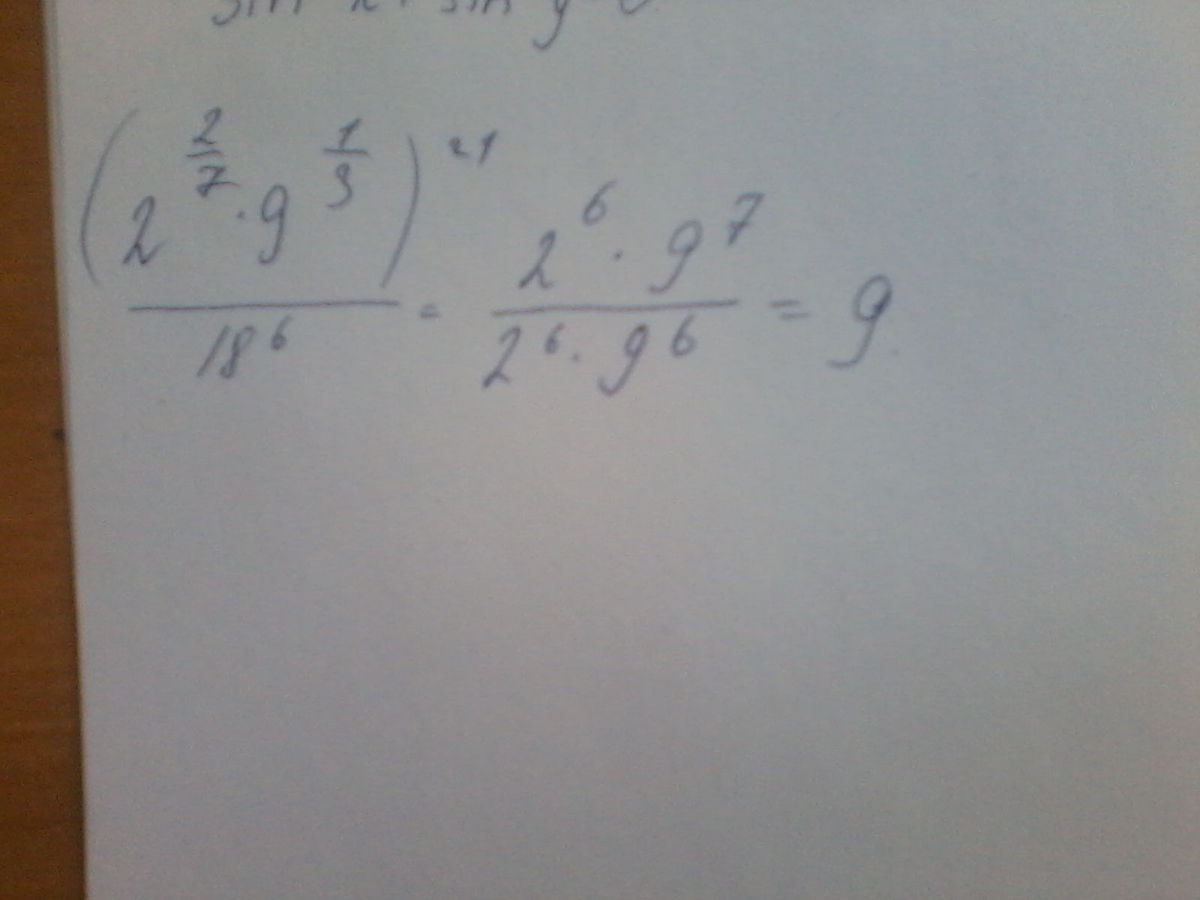 (2^{\frac{2}{7}} · 9^{\frac{1}{3}})^{21} / 18^6 = 2^6 · 9^7 / 2^6 · 9^6 = 9